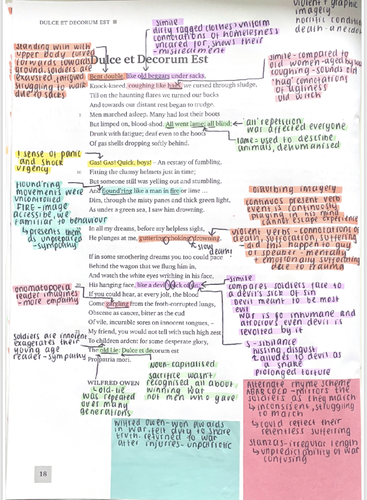 DULCE ET DECORUM EST
violent + graphic
imagery
horrific condition
death - anecdote
simile
dirty ragged clothes/uniform
connotations of homelessness
uncared for, shows their
mistreatment
standing with with
upper body curved
forwards towards
ground. soldiers are
exhausted, fatigued
struggling to walk
due to sacks
Dulce et Decorum Est
Bent double, like old beggars under sacks,
Knock-kneed, coughing like hags, we cursed through sludge,
Till on the haunting flares we turned our backs
And towards our distant rest began to trudge.
Men marched asleep. Many had lost their boots
But limped on, blood-shod. All went lame; all blind;
Drunk with fatigue; deaf even to the hoots
Of gas shells dropping softly behind.
simile - compared to
old women - aged by war
coughing - sounds old
'hag' connotations
of ugliness
old witch
'all' repetition
war affected everyone
lame = used to describe
animals, dehumanised
! sense of panic
and shock
urgency
Gas! Gas! Quick, boys! – An ecstasy of fumbling,
Fitting the clumsy helmets just in time;
But someone still was yelling out and stumbling,
And flound'ring like a man in fire or lime ...
Dim, through the misty panes and thick green light,
As under a green sea, I saw him drowning.
flound'ring
movements were
uncontrolled
FIRE - image
accessible, we
familiar to behaviour
→ presents them
as unprepared
- sympathy
disturbing imagery
continuous present verb
event is continuously
playing in his mind
cannot escape experience
In all my dreams, before my helpless sight,
He plunges at me, guttering, choking, drowning.
slow deaths
violent verbs - connotations of
death, suffocation, suffering
- did this happen to guy
or speaker - mentally
+ emotionally suffering
due to trauma
If in some smothering dreams you too could pace
Behind the wagon that we flung him in,
And watch the white eyes writhing in his face,
His hanging face, like a devil's sick of sin;
If you could hear, at every jolt, the blood
Come gargling from the froth-corrupted lungs,
Obscene as cancer, bitter as the cud
Of vile, incurable sores on innocent tongues, –
My friend, you would not tell with such high zest
To children ardent for some desperate glory,
The old Lie: Dulce et decorum est
Pro patria mori.
onomatopoeia
reader imagines
- more empathy
simile
compares soldiers face to
a devil's sick of sin
devil meant to be most
evil
war is so inhumane and
atrocious even devil is
revolted by it
s - sibilance
hissing, disgust
alludes to devil as
a snake
prolonged torture
soldiers are innocent
exagerates their
young age
reader - sympathy
WILFRED OWEN
noun - capitalised
sacrifice wasn't
recognised, all about
winning war
not men who gave
old lie -
was repeated
over many
generations
Wilfred Owen - won awards
in war. felt duty to share
truth - returned to war
after injuries - unpatriotic
Alternate rhyme scheme
ABABCDCD - mirrors the
soldiers as they march
↳ inconsistent, struggling
to march
↳ could reflect their
relentless suffering
stanzas - irregular length
↳ unpredictability of war
confusing
18